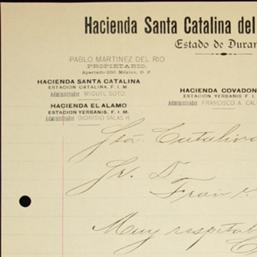 Hacienda Santa Catalina del
Estado de Duran
PABLO MARTINEZ DEL RIO
PROPIETARIO.
Apartado 250, México, D. F.
HACIENDA SANTA CATALINA
ESTACION CATALINA, F. I. M.
Administrador MIGUEL SOTO.
HACIENDA EL ALAMO
ESTACION YERBANIS. F. I. M.
Administrador DIONISIO SALAS H.
HACIENDA COVADON
ESTACION YERBANIS F. I.
Administrador FRANCISCO A. CAL
Sta. Catalina
Sr. D.
Fran
Muy respetab